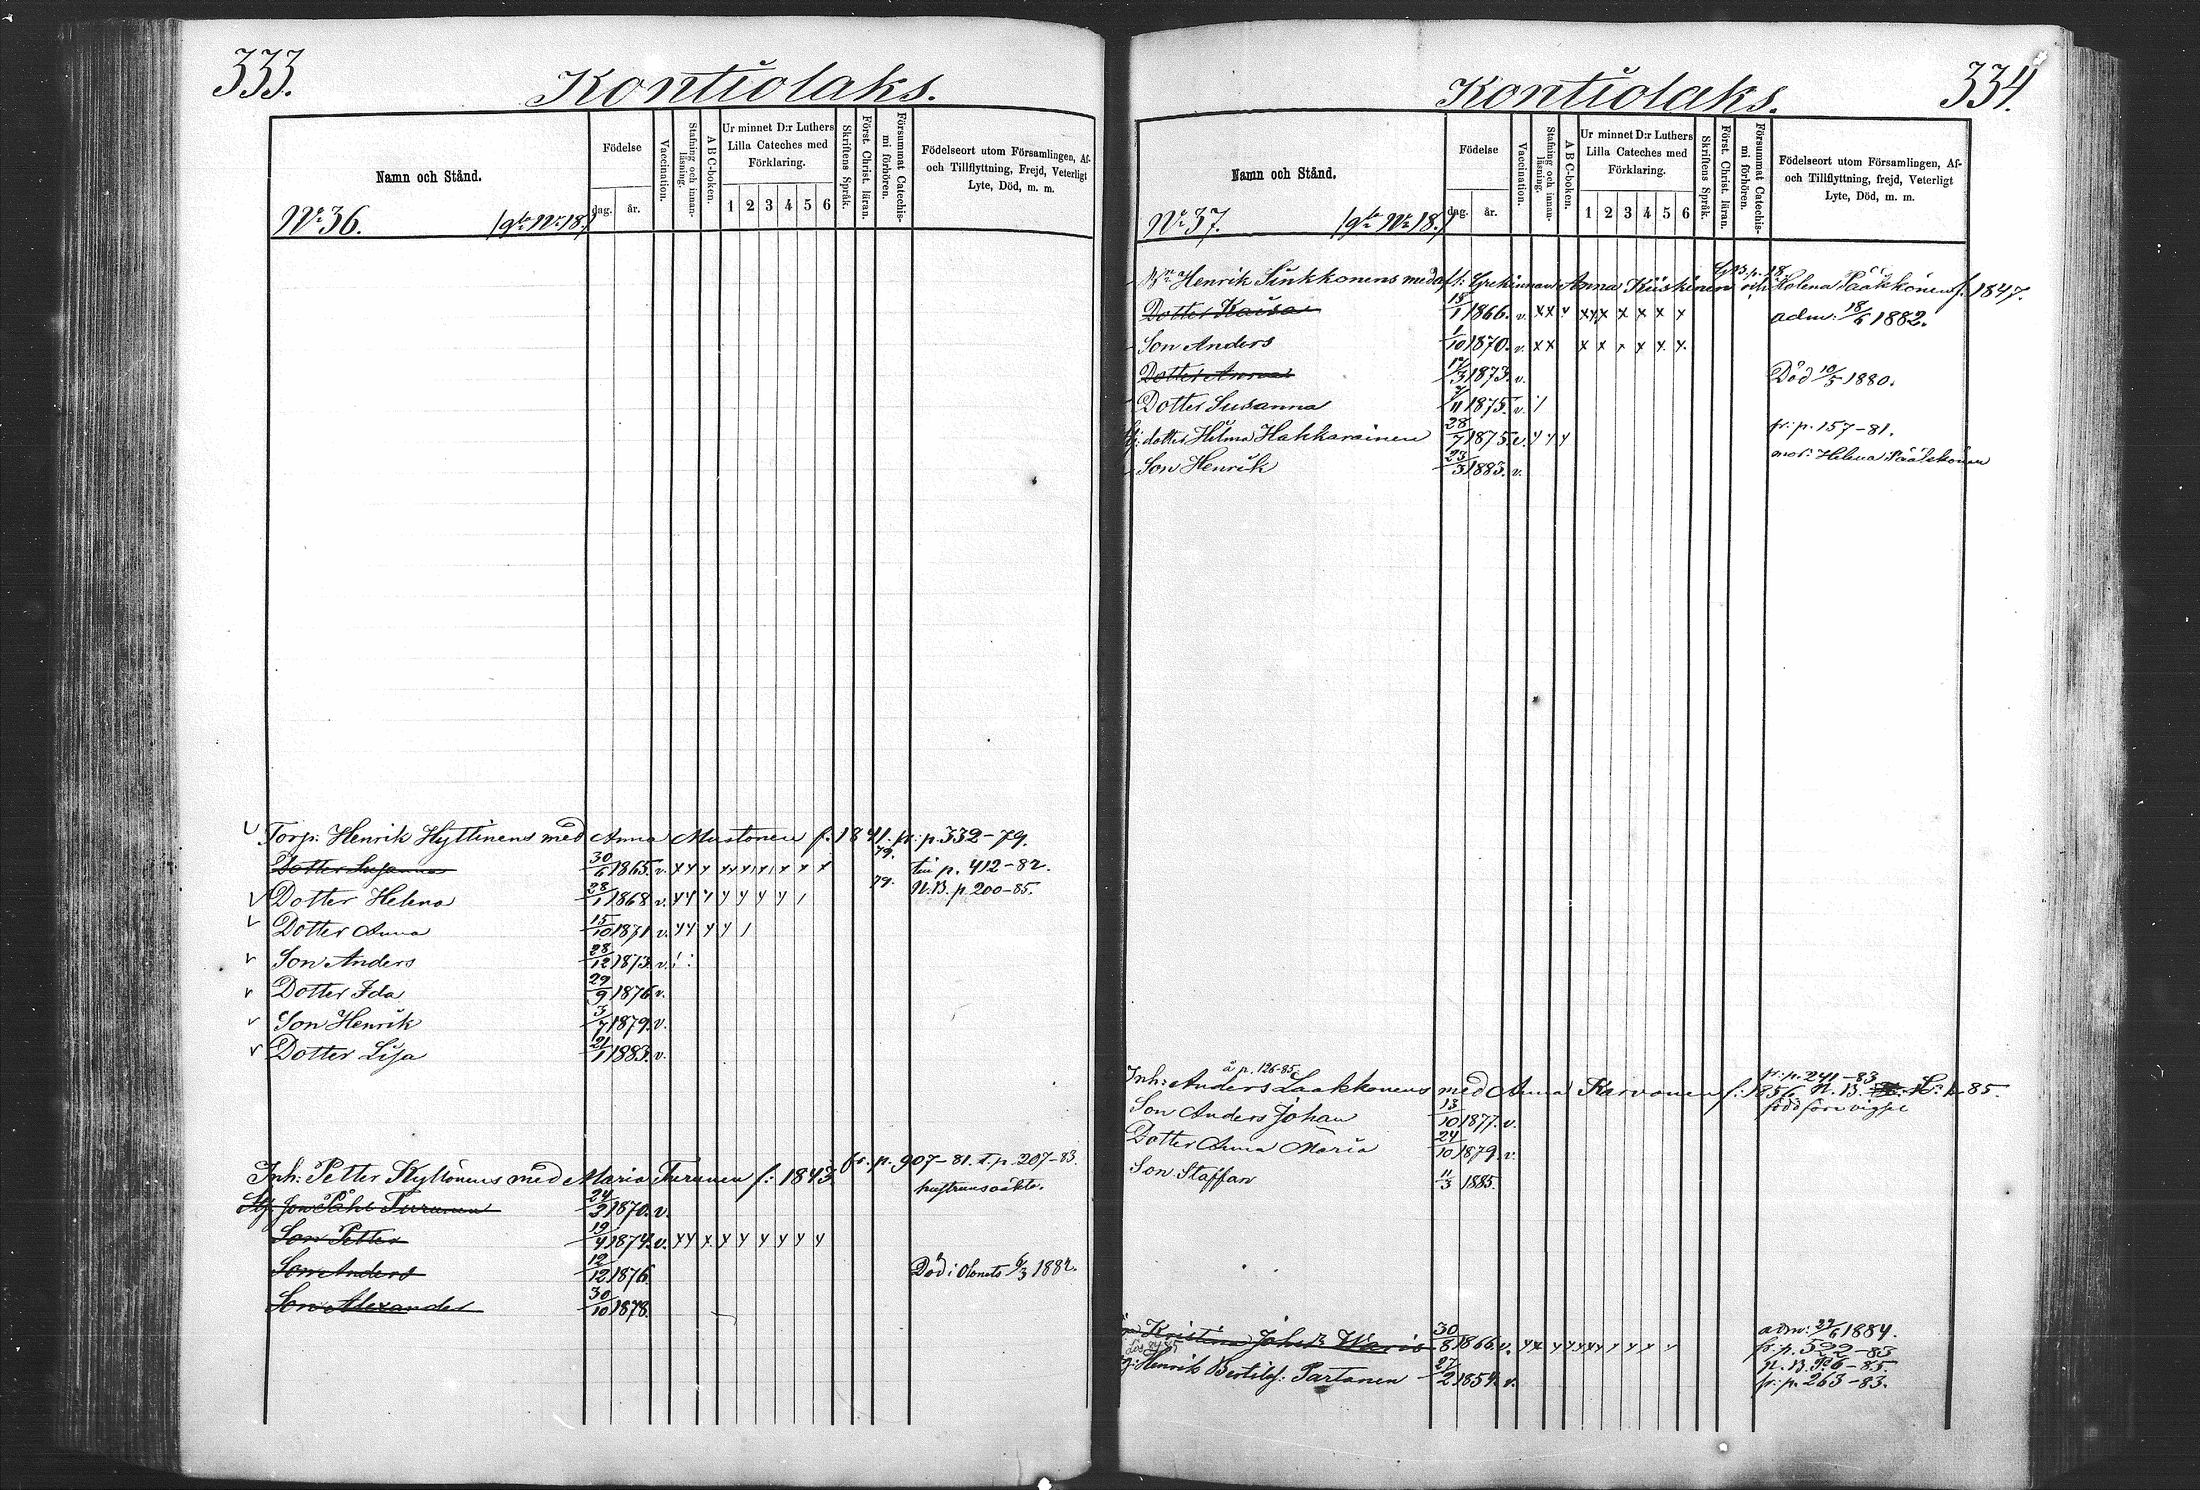 333.
Kontiolaks.
Namn och Stånd.
Födelse
dag. år.
Vaccination.
Stafning och innanläsning.
A B C-boken.
Ur minnet D:r Luthers Lilla Cateches med Förklaring.
1 2 3 4 5 6
Skriftens Språk.
Först. Christ. läran.
Försummat Catechismi förhören.
Födelseort utom Församlingen, Af- och Tillflyttning, Frejd, Veterligt Lyte, Död, m. m.
No 36. /gla No 18./
Torp: Henrik Hyttinens med Anna Mustonen f. 1841. fr: p. 332-79.
Dotter Susanna 30/6 1865. v. x x x x x x x x x x 79. till p. 412-82.
v Dotter Helena 28/1 1868 v. 79. N.B. p. 200-85.
v Dotter Anna 15/10 1871 v.
v Son Anders 28/12 1873 v.
v Dotter Ida 29/9 1876 v.
v Son Henrik 3/7 1879. v.
v Dotter Lisa 21/1 1883. v.
Inh: Petter Kyllönens med Maria Turunen f: 1843. fr. p. 907-81. t. p. 207-83.
Turunen 24/3 1870. v. hustruns oäkta.
Son Petter 19/4 1874. v.
Son Anders 12/12 1876. Död i Olonets 6/3 1882.
Son Alexander 30/10 1878.
334.
Kontiolaks.
Namn och Stånd.
Födelse
dag. år.
Vaccination.
Stafning och innanläsning.
A B C-boken.
Ur minnet D:r Luthers Lilla Cateches med Förklaring.
1 2 3 4 5 6
Skriftens Språk.
Först. Christ. läran.
Försummat Catechismi förhören.
Födelseort utom Församlingen, Af- och Tillflyttning, frejd, Veterligt Lyte, Död, m. m.
No 37. /gla No 18./
Henrik Sinkkonens med afl: Grekinnan Anna Kiiskinen och Helena Pääkkönen f. 1847.
Dotter Kaisa 18/1 1866. v. x x x x x x x x x adm. 18/6 1882.
Son Anders 1/10 1870. v. x x x x x x x x
Dotter Anna 17/3 1873. v. Död 10/5 1880.
Dotter Susanna 1875. v.
dotter Helma Hakkarainen 28/7 1875. v. fr: p. 157-81.
Son Henrik 23/3 1883. v. mor: Helena Pääkkönen
å p. 126-85.
fr: p. 241-83.
Inh: Anders Laakkonens med Anna Karvonen f: 1856. N.B. 85.
Son Anders Johan 13/10 1877. v. född före vigsel
Dotter Anna Maria 24/10 1879. v.
Son Staffan 11/3 1885.
Kristina Johsdr Waris 30/8 1866. v. adm: 1884.
fr. p. 522-83
Henrik Bertilss: Partanen 27/2 1854. v. N.B. 85.
fr: p. 263-83.